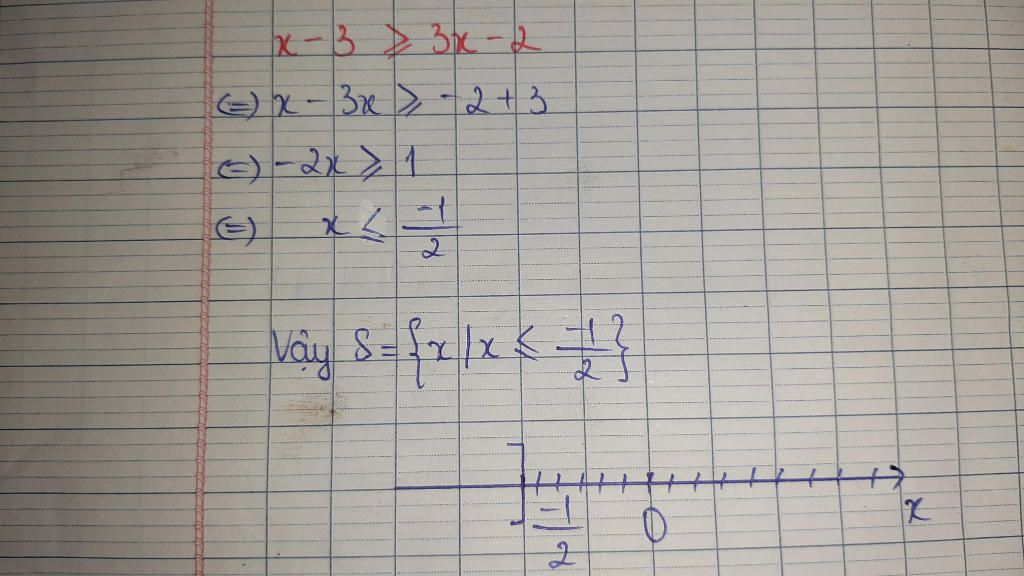 x - 3 ⩾ 3x - 2
(=) x - 3x ⩾ -2 + 3
(=) -2x ⩾ 1
(=) x ⩽ -1/2
Vậy S = {x | x ⩽ -1/2}
-1/2 0 x